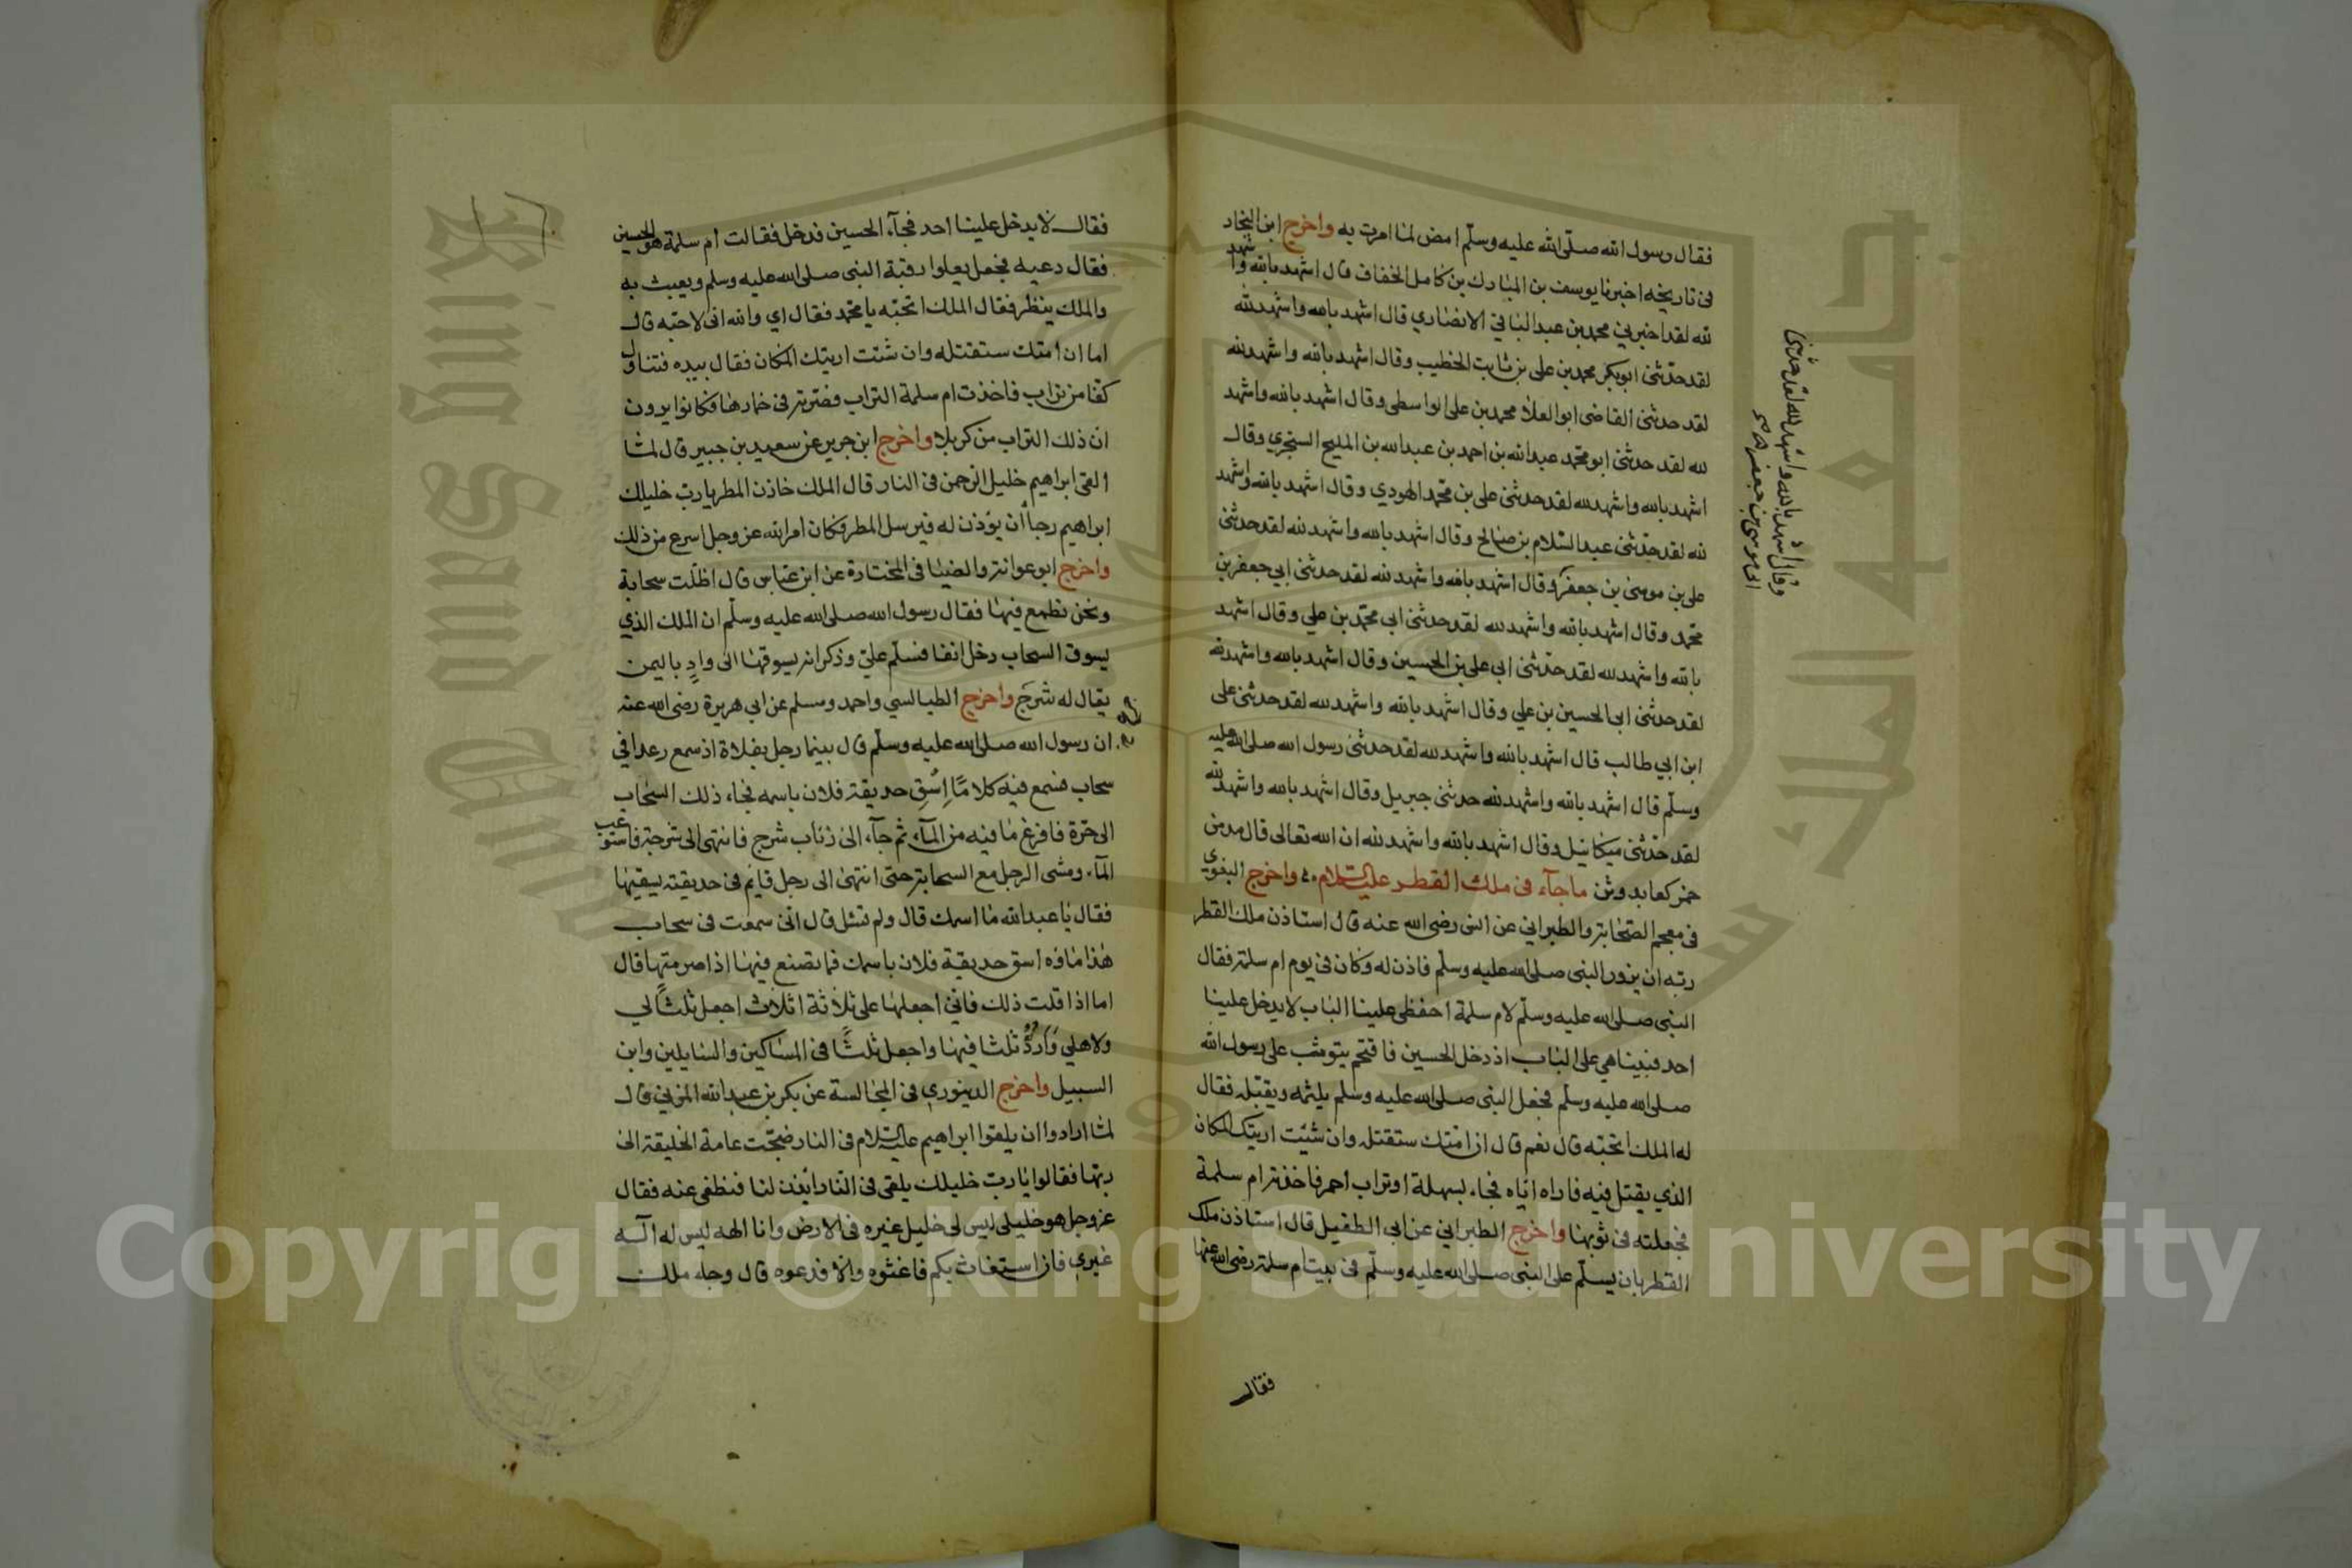 فقال رسول الله صلّى الله عليه وسلّم امض لما امرت به واخرج ابن النجار
فى تاريخه اخبرنا يوسف بن المبارك بن كامل الخفاف قال اشهد بالله واشهد
لله لقد اخبرني محمد بن عبد الباقي الانصاري قال اشهد بالله واشهد لله
لقد حدّثنى ابو بكر محمد بن على بن ثابت الخطيب وقال اشهد بالله واشهد لله
لقد حدثنى القاضى ابو العلا محمد بن على الواسطى وقال اشهد بالله واشهد
لله لقد حدثنى ابو محمّد عبد الله بن احمد بن عبد الله بن المليح السنجري وقال
اشهد بالله واشهد لله لقد حدثنى على بن محمّد الهودي وقال اشهد بالله واشهد
لله لقد حدّثنى عبد السّلام بن صالح وقال اشهد بالله واشهد لله لقد حدثنى
على بن موسى بن جعفر وقال اشهد بالله واشهد لله لقد حدثنى ابي جعفر بن
محمّد وقال اشهد بالله واشهد لله لقد حدثنى ابي محمّد بن علي وقال اشهد
بالله واشهد لله لقد حدّثنى ابى على بن الحسين وقال اشهد بالله واشهد لله
لقد حدثنى ابى الحسين بن علي وقال اشهد بالله واشهد لله لقد حدثنى على
ابن ابي طالب قال اشهد بالله واشهد لله لقد حدثنى رسول الله صلى الله عليه
وسلّم قال اشهد بالله واشهد لله حدثنى جبريل وقال اشهد بالله واشهد لله
لقد حدّثنى ميكائيل وقال اشهد بالله واشهد لله ان الله تعالى قال مدمن
خمر كعابد وثن ما جآء فى ملك القطر عليه السّلام واخرج البغوي
فى معجم الصّحابة والطبراني عن انس رضى الله عنه قال استاذن ملك القطر
ربّه ان يزور النبى صلى الله عليه وسلّم فاذن له وكان فى يوم ام سلمة فقال
النبى صلى الله عليه وسلّم لام سلمة احفظى علينا الباب لا يدخل علينا
احد فبينا هي على الباب اذ دخل الحسين فاقتحم يتوثب على رسول الله
صلى الله عليه وسلّم فجعل النبى صلى الله عليه وسلم يلثمه ويقبّله فقال
له الملك اتحبّه قال نعم قال ان امتك ستقتله وان شئت اريتك المكان
الذي يقتل فيه فاراه اياه فجاء بسهلة او تراب احمر فاخذته ام سلمة
فجعلته فى ثوبها واخرج الطبراني عن ابي الطفيل قال استاذن ملك
القطر بان يسلّم على النبى صلى الله عليه وسلّم فى بيت ام سلمة رضى الله عنها
فقال
وقال اشهد بالله واشهد لله لقد حدثنى
ابى موسى بن جعفر
فقال لا يدخل علينا احد فجآء الحسين فدخل فقالت ام سلمة هو الحسين
فقال دعيه فجعل يعلوا رقبة النبى صلى الله عليه وسلم ويعبث به
والملك ينظر فقال الملك اتحبّه يا محمّد فقال اي والله انى لاحبّه قال
اما ان امتك ستقتله وان شئت اريتك المكان فقال بيده فتناول
كفّا من تراب فاخذت ام سلمة التراب فصرّته فى خمارها فكانوا يرون
ان ذلك التراب من كربلا واخرج ابن جرير عن سعيد بن جبير قال لمّا
القى ابراهيم خليل الرّحمن فى النار قال الملك خازن المطر يا ربّ خليلك
ابراهيم رجا أن يؤذن له فيرسل المطر فكان امر الله عز وجل اسرع من ذلك
واخرج ابو عوانة والضيا فى المختارة عن ابن عبّاس قال اظلّت سحابة
ونحن نطمع فيها فقال رسول الله صلى الله عليه وسلّم ان الملك الذي
يسوق السحاب دخل انفا فسلّم عليّ وذكر انه يسوقها الى وادٍ باليمن
يقال له شَرجَ واخرج الطيالسي واحمد ومسلم عن ابي هريرة رضى الله عنه
ان رسول الله صلى الله عليه وسلّم قال بينما رجل بفلاة اذ سمع رعدا في
سحاب فسمع فيه كلامًا اِسْقِ حديقة فلان باسمه فجاء ذلك السّحاب
الى حرّة فافرغ ما فيه من المآء ثم جآء الى ذناب شرج فانتهى الى شرجة فاستوعب
المآء ومشى الرجل مع السحابة حتى انتهى الى رجل قايم فى حديقته يسقيها
فقال يا عبد الله ما اسمك قال ولم تسئل قال انّى سمعت فى سحاب
هذا ماؤه اسق حديقة فلان باسمك فما تصنع فيها اذا صرمتها قال
اما اذا قلت ذلك فانّى اجعلها على ثلاثة اثلاث اجعل ثلثًا لي
ولاهلي وَاَردُّ ثلثا فيها واجعل ثلثًا فى المساكين والسايلين وابن
السبيل واخرج الدينوري فى المجالسة عن بكر بن عبد الله المزني قال
لمّا ارادوا ان يلقوا ابراهيم عليه السّلام فى النار ضجّت عامة الخليقة الى
ربّها فقالوا يا ربّ خليلك يلقى فى النار ائذن لنا فنطفى عنه فقال
عز وجل هو خليلى ليس لى خليل غيره فى الارض وانا الهه ليس له آله
غيري فان استغاث بكم فاغثوه والا فدعوه قال وجاء ملك
جامعة الملك سعود
King Saud University
Copyright © King Saud University